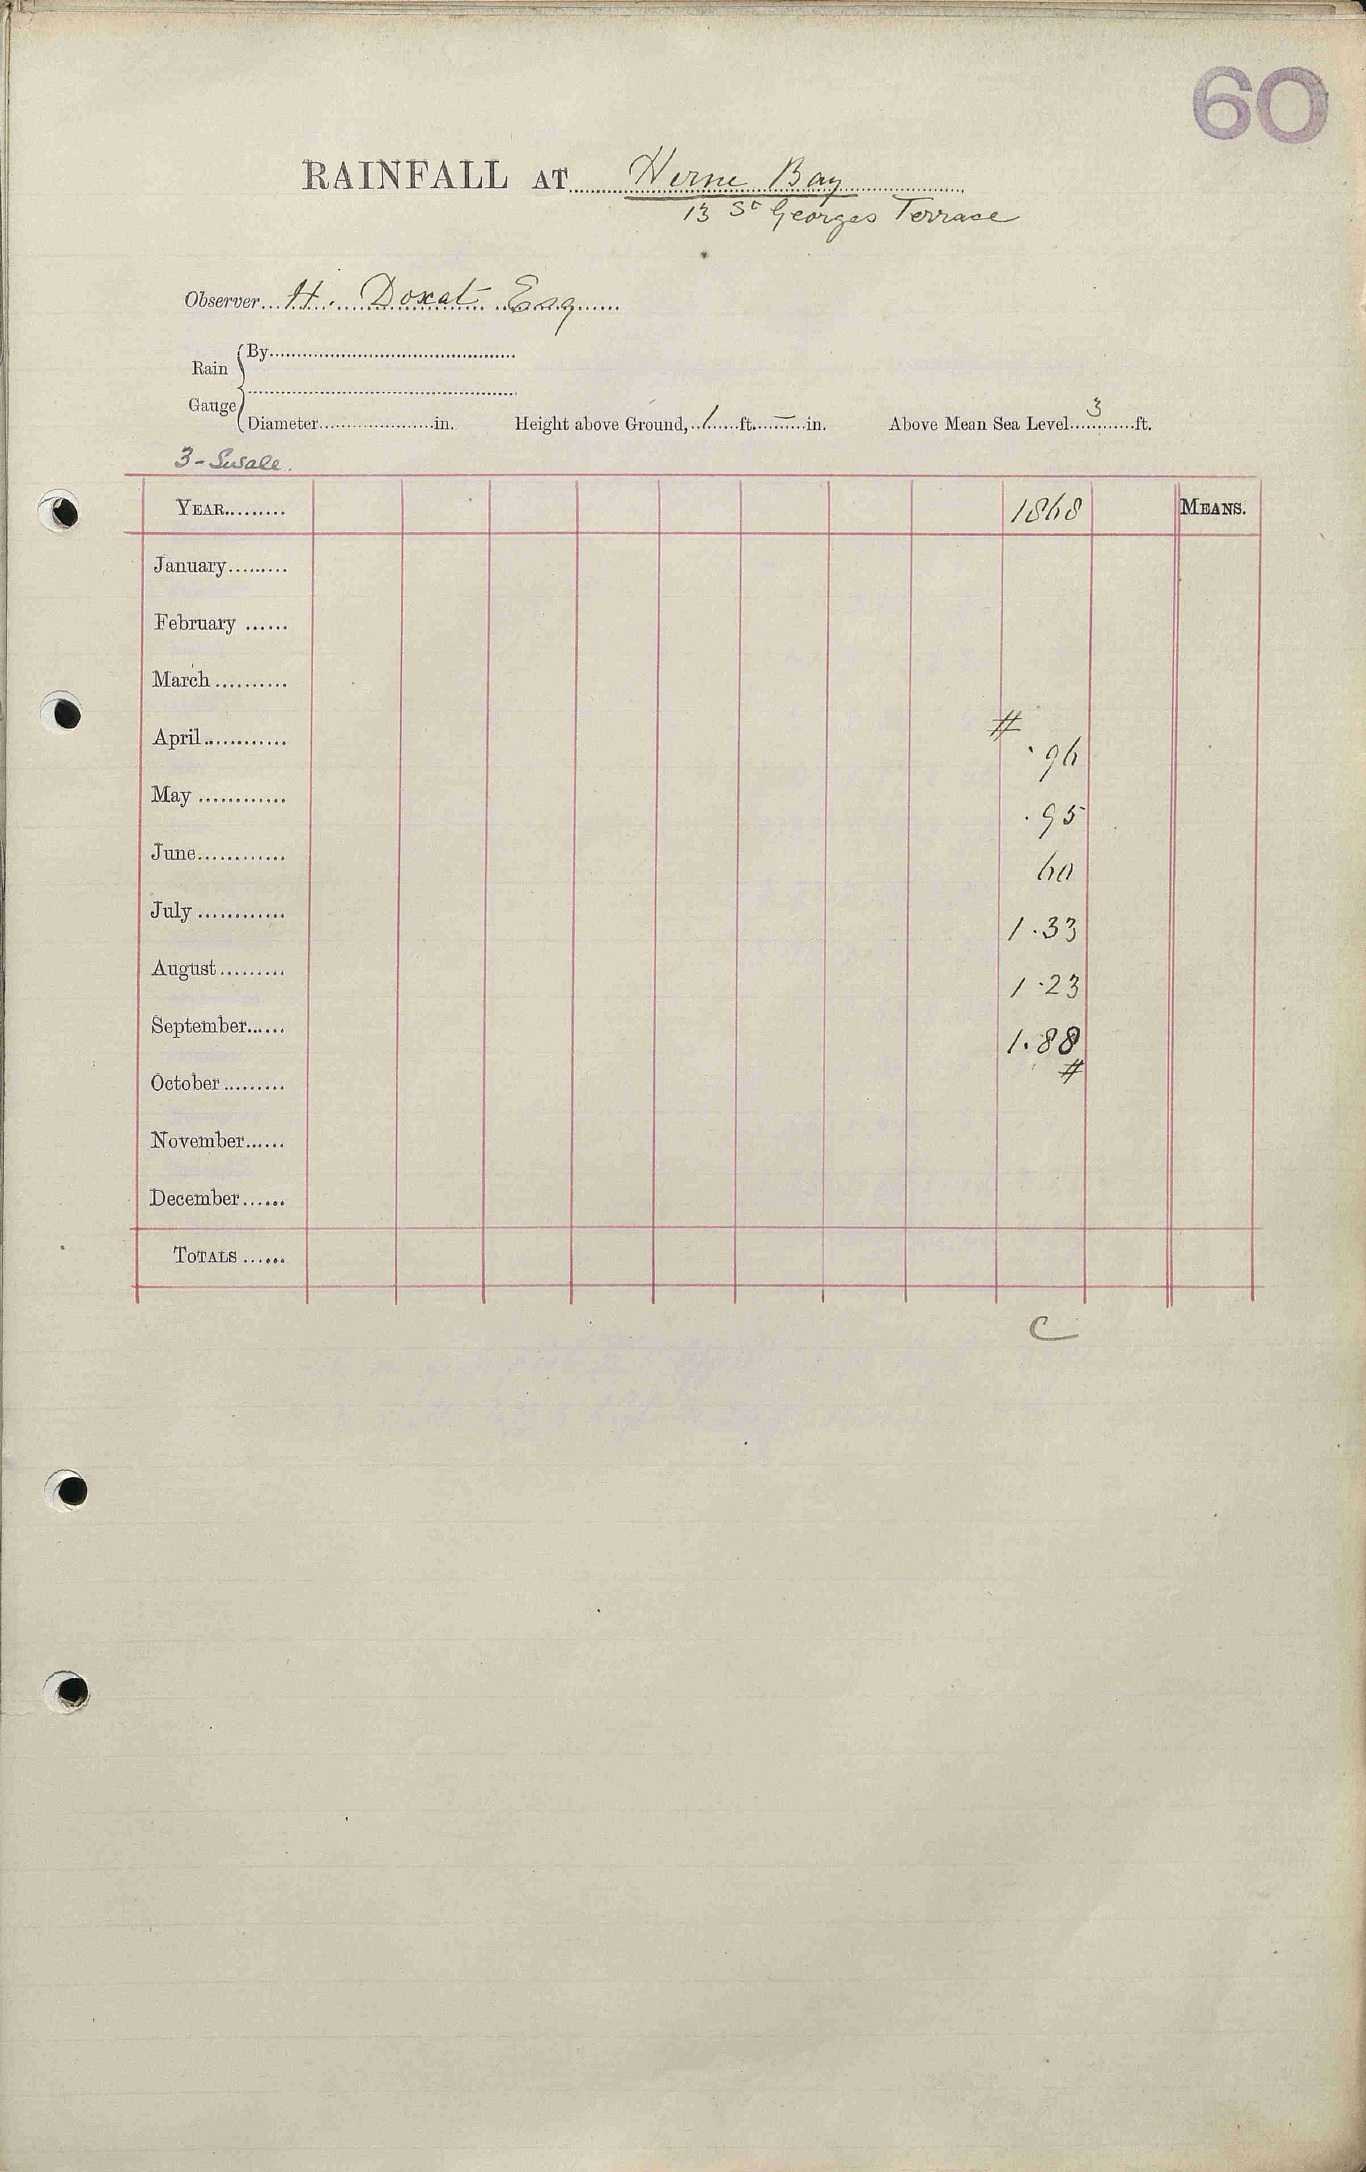 60
RAINFALL AT Herne Bay
13 St Georges Terrace
Observer H. Doxat Esq
Rain Gauge By
Diameter in. Height above Ground, 1 ft. – in. Above Mean Sea Level 3 ft.
3 - Swale.
YEAR 1868 MEANS.
January
February
March
#
April .96
May .95
June 60
July 1.33
August 1.23
September 1.88
#
October
November
December
TOTALS
C